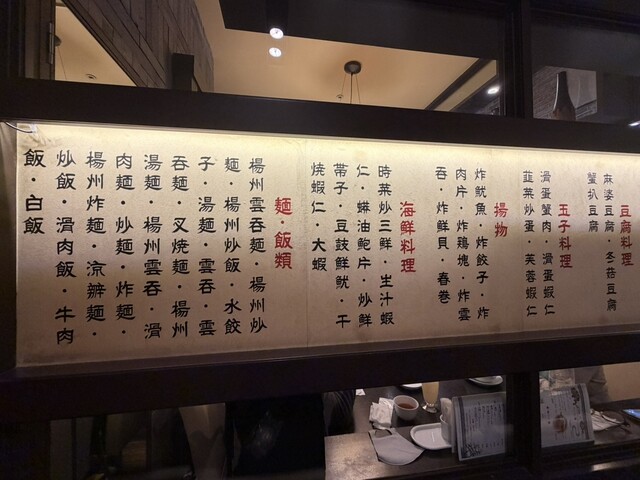 豆腐料理
麻婆豆腐・冬菇豆腐
蟹扒豆腐
玉子料理
滑蛋蟹肉・滑蛋蝦仁
韮菜炒蛋・芙蓉蝦仁
揚物
炸魷魚・炸餃子・炸
肉片・炸鶏塊・炸雲
吞・炸鮮貝・春巻
海鮮料理
時菜炒三鮮・生汁蝦
仁・蠔油鮑片・炒鮮
帶子・豆鼓鮮魷・干
燒蝦仁・大蝦
麺・飯類
楊州雲吞麺・楊州炒
麺・楊州炒飯・水餃
子・湯麺・雲吞・雲
吞麺・叉燒麺・楊州
湯麺・楊州雲吞・滑
肉麺・炒麺・炸麺・
楊州炸麺・涼辦麺・
炒飯・滑肉飯・牛肉
飯・白飯